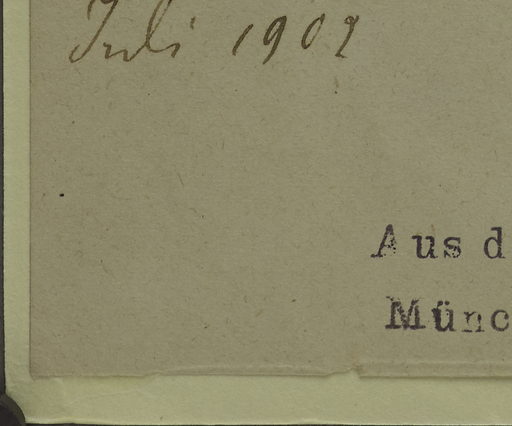 Juli 1909
Aus d
Münc